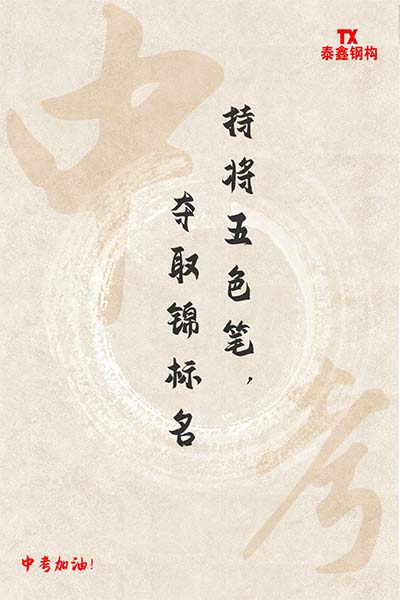 TX
泰鑫钢构
中考
持将五色笔，
夺取锦标名
中考加油！